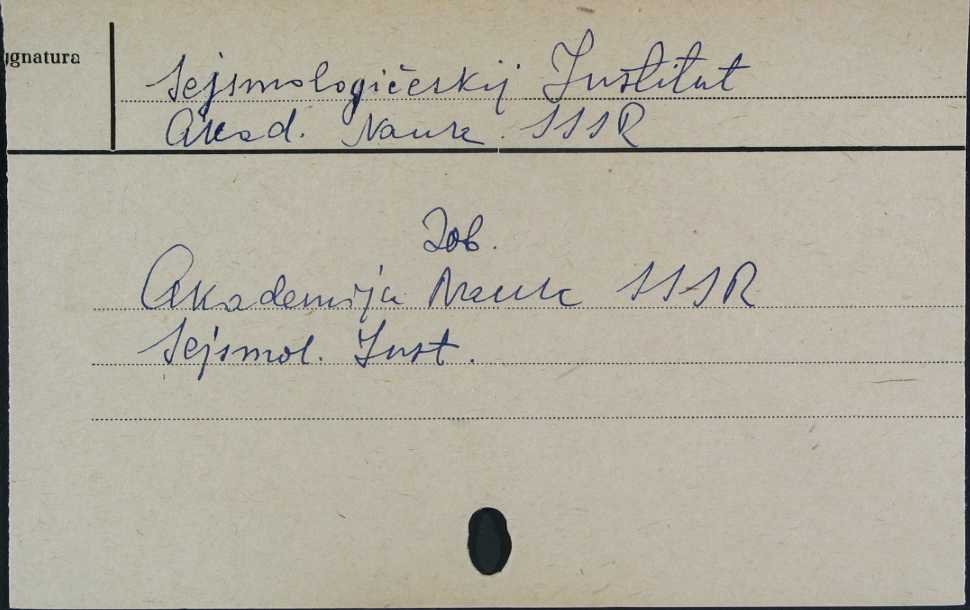 ygnatura
Sejsmologičeskij Institut
Akad. Nauk. SSSR
Zob.
Akademija Nauk SSSR
Sejsmol. Inst.